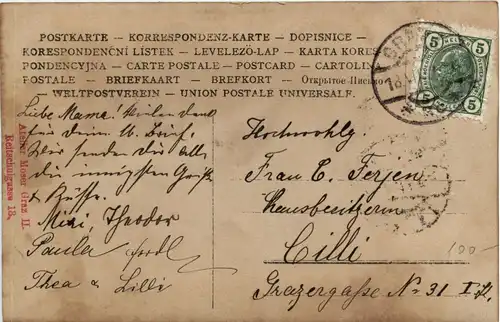 POSTKARTE — KORRESPONDENZ-KARTE — DOPISNICE —
KORESPONDENČNÍ LÍSTEK — LEVELEZŐ-LAP — KARTA KORES
PONDENCYJNA — CARTE POSTALE — POSTCARD — CARTOLIN
POSTALE — BRIEFKAART — BREFKORT — Открытое Письмо
— WELTPOSTVEREIN — UNION POSTALE UNIVERSALE.
Liebe Mama! Vielen Dank
für deinen l. Brief.
Wir senden dir alle
die innigsten Grüße
& Küsse.
Mizi, Theodor
Paula
Thea & Lilli
Atelier Moser Graz II.
Reitschulgasse 13.
Hochwohlg
Frau C. Ferjen
Hausbesitzerin
Cilli
Grazergaße No 31 I. St.
GRAZ
5 5
5 5
100-